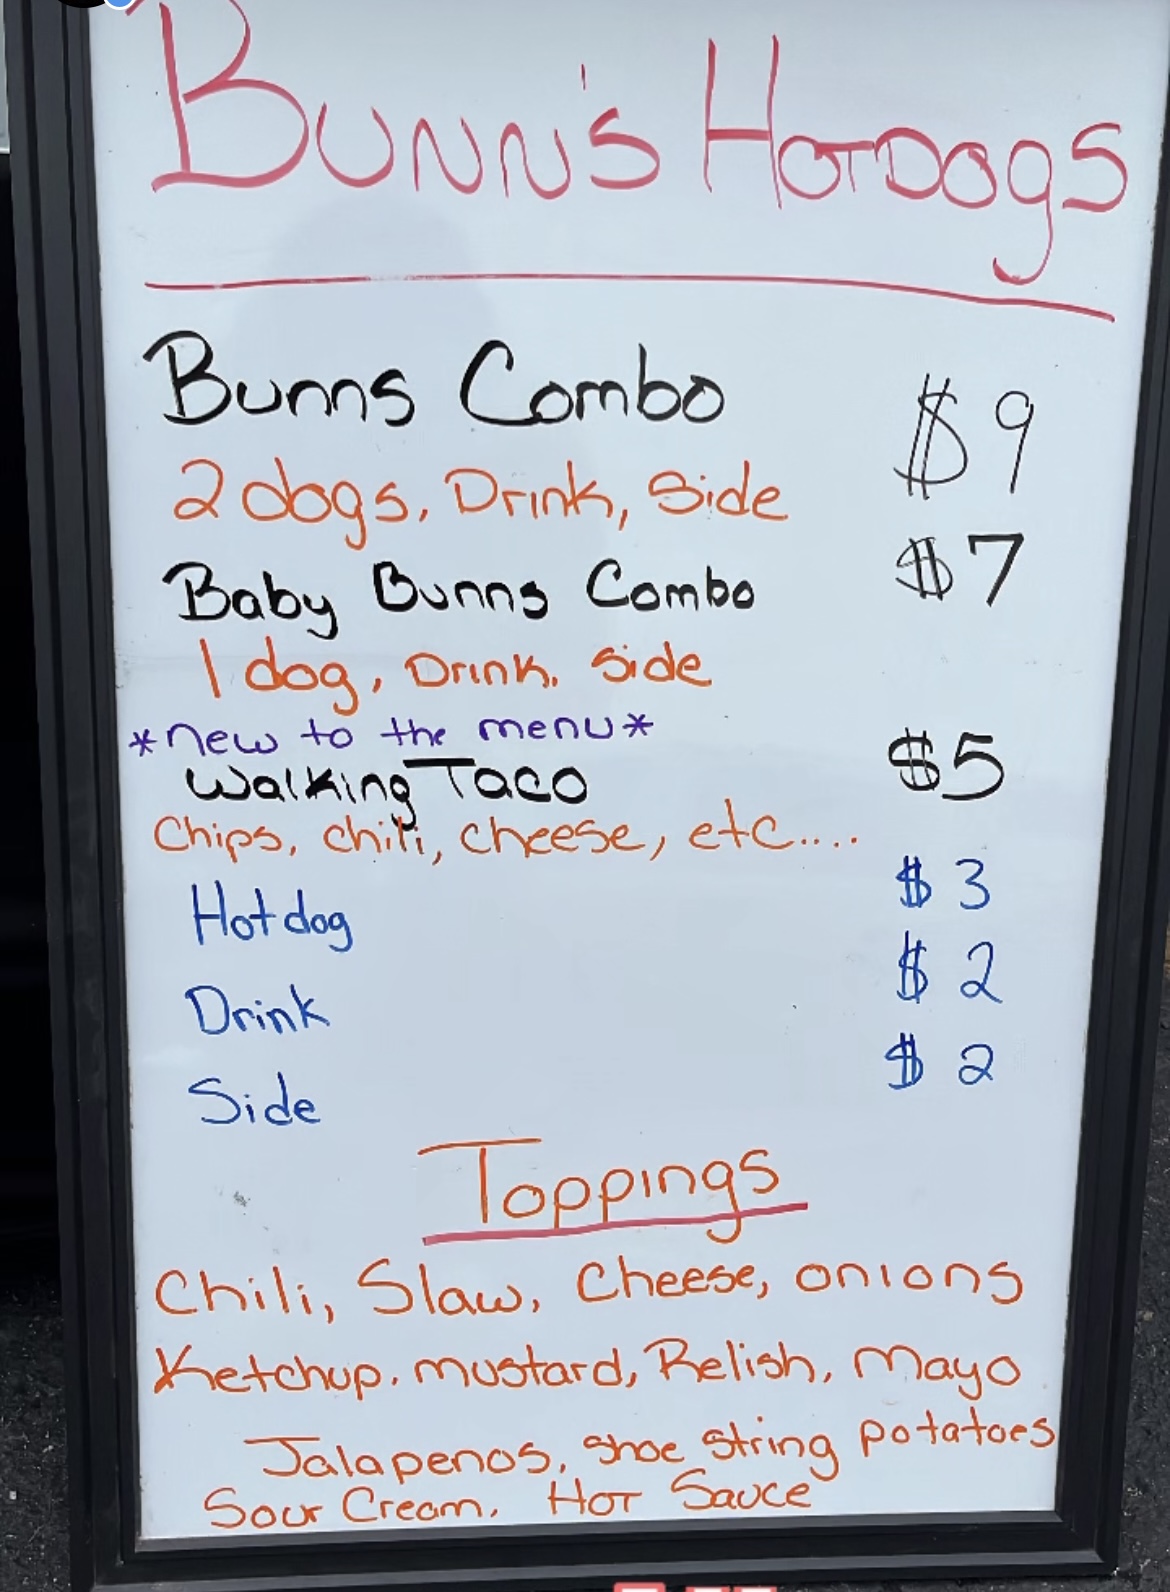 Bunn's HotDogs
Bunns Combo $9
2 dogs, Drink, Side
Baby Bunns Combo $7
1 dog, Drink, Side
*new to the menu*
Walking Taco $5
Chips, chili, cheese, etc....
Hotdog $3
Drink $2
Side $2
Toppings
Chili, Slaw, Cheese, onions
Ketchup, mustard, Relish, Mayo
Jalapenos, Shoe String potatoes
Sour Cream, Hot Sauce